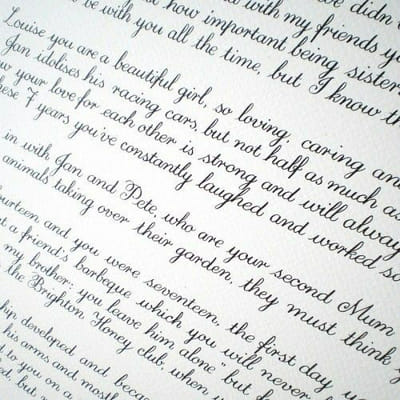 didn
with my friends yo
how important being sister
be with you all the time, but I know th
Louise you are a beautiful girl, so loving, caring and
Jan idolises his racing cars, but not half as much as
your love for each other is strong and will alway
these 7 years you've constantly laughed and worked so
in with Jan and Pete, who are your second Mum
animals taking over their garden, they must think
fourteen and you were seventeen, the first day yo
a friend's barbeque which you will never
my brother; you leave him alone" but
the Brighton Honey club, when
developed and beca
his arms and mostly
to you on a
but